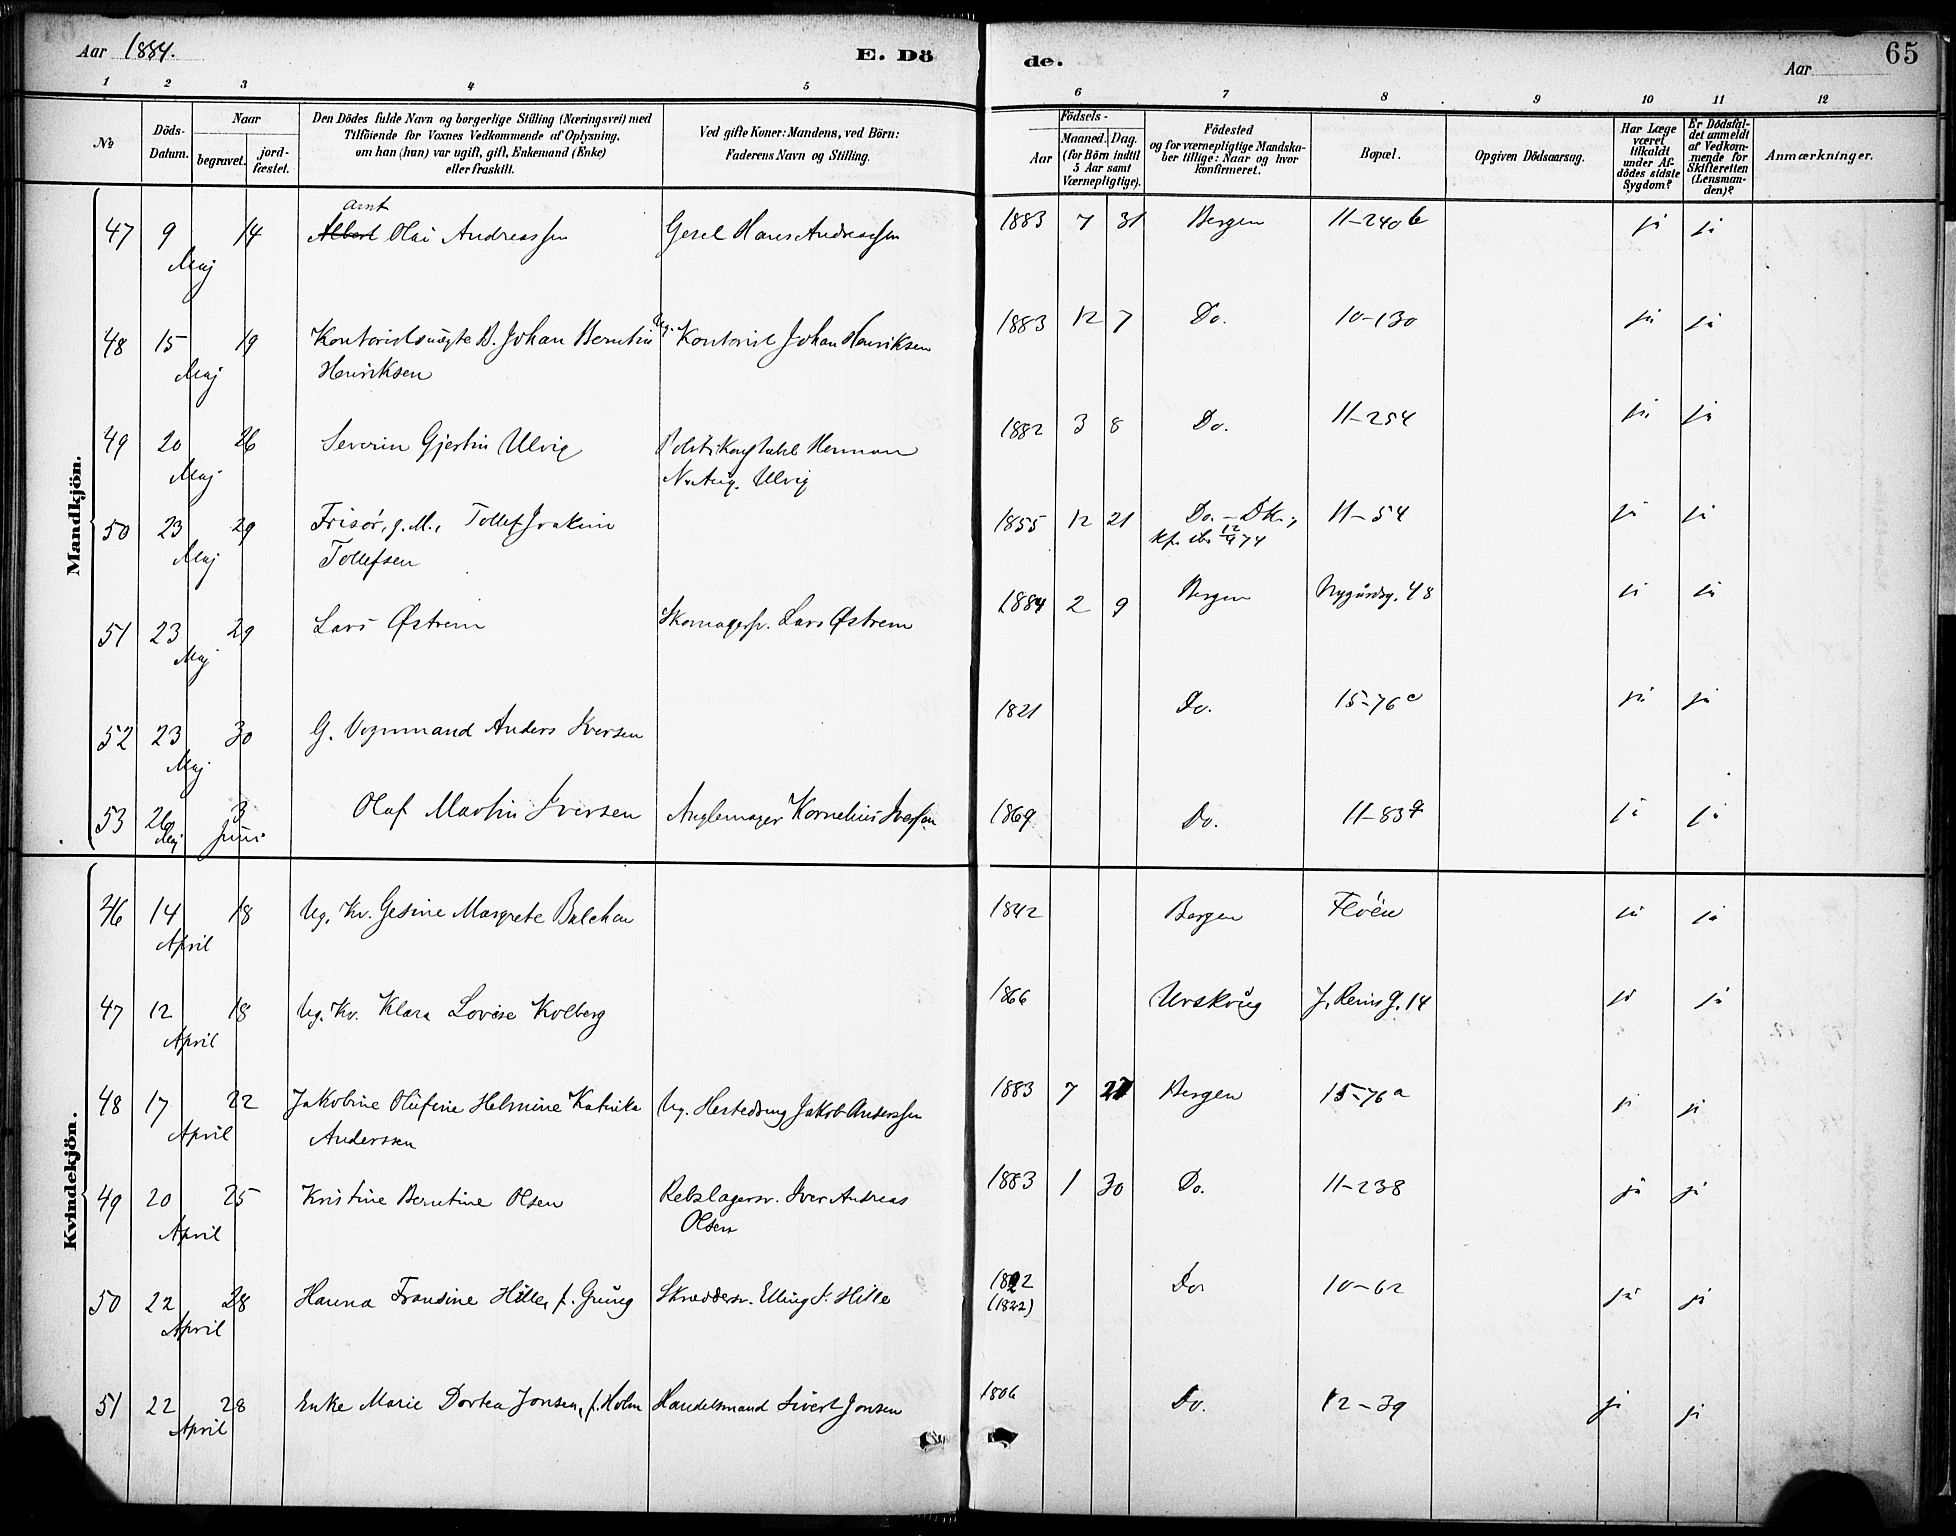 Aar 1884.
E. Dö
de.
Aar
65
1 2 3 4 5 6 7 8 9 10 11 12
No
Döds-
Datum.
Naar
begravet.
jord-
fæstet.
Den Dödes fulde Navn og borgerlige Stilling (Næringsvei) med
Tilföiende for Voxnes Vedkommende af Oplysning,
om han (hun) var ugift, gift, Enkemand (Enke)
eller fraskilt.
Ved gifte Koner: Mandens, ved Börn:
Faderens Navn og Stilling.
Födsels-
Aar
Maaned. Dag.
(for Börn indtil
5 Aar samt
Værnepligtige).
Födested
og for værnepligtige Mandska-
ber tillige: Naar og hvor
konfirmeret.
Bopæl.
Opgiven Dödsaarsag.
Har Læge
været
tilkaldt
under Af-
dödes sidste
Sygdom?
Er Dödsfal-
det anmeldt
af Vedkom-
mende for
Skifteretten
(Lensman-
den)?
Anmærkninger.
Mandkjön.
Arnt
47 9 14 Albert Olai Andreassen Gesel Hans Andreassen 1883 7 31 Bergen 11-240 b ja ja
Maj
48 15 19 Johan Berntin Ug. Kontorist Johan Henriksen 1883 12 7 Do. 10-130 ja ja
Maj Henriksen
49 20 26 Severin Gjertin Ulvig Politikonstabel Herman 1882 3 8 Do. 11-254 ja ja
Maj Ulvig
50 23 29 Frisør, g. M., Tollef Joakim 1855 12 21 Do. - DK., 11-54 ja ja
Maj Tollefsen kf. 12/9 74
51 23 29 Lars Østrem Skomagersv. Lars Østrem 1884 2 9 Bergen Nygårdsg. 48 ja ja
Maj
52 23 30 G. Vognmand Anders Iversen 1821 Do. 15-76 c ja ja
Maj
53 26 3 Olaf Martin Iversen Nøglemager Kornelius Iversen 1869 Do. 11-83 ja ja
Maj Juni
Kvindekjön.
46 14 18 Ug. Kv. Gesine Margrete Balchen 1842 Bergen Fløen ja ja
April
47 12 18 Ug. Kv. Klara Lovise Kolberg 1866 Urskoug 14 ja ja
April
48 17 22 Jakobine Olufine Helmine Katrika Ug. Hestedreng Jakob Anderssen 1883 7 27 Bergen 15-76 a ja ja
April Anderssen
49 20 25 Kristine Berntine Olsen Rebslagersv. Iver Andreas 1883 1 30 Do. 11-238 ja ja
April Olsen
50 22 28 Hanna Fransine Hille, f. Grung Skræddersv. Elling S. Hille 1822 Do. 10-62 ja ja
April (1822)
51 22 28 Enke Marie Dortea Jonsen, f. Holm Handelsmand Sivert Jonsen 1806 Do. 12-39 ja ja
April